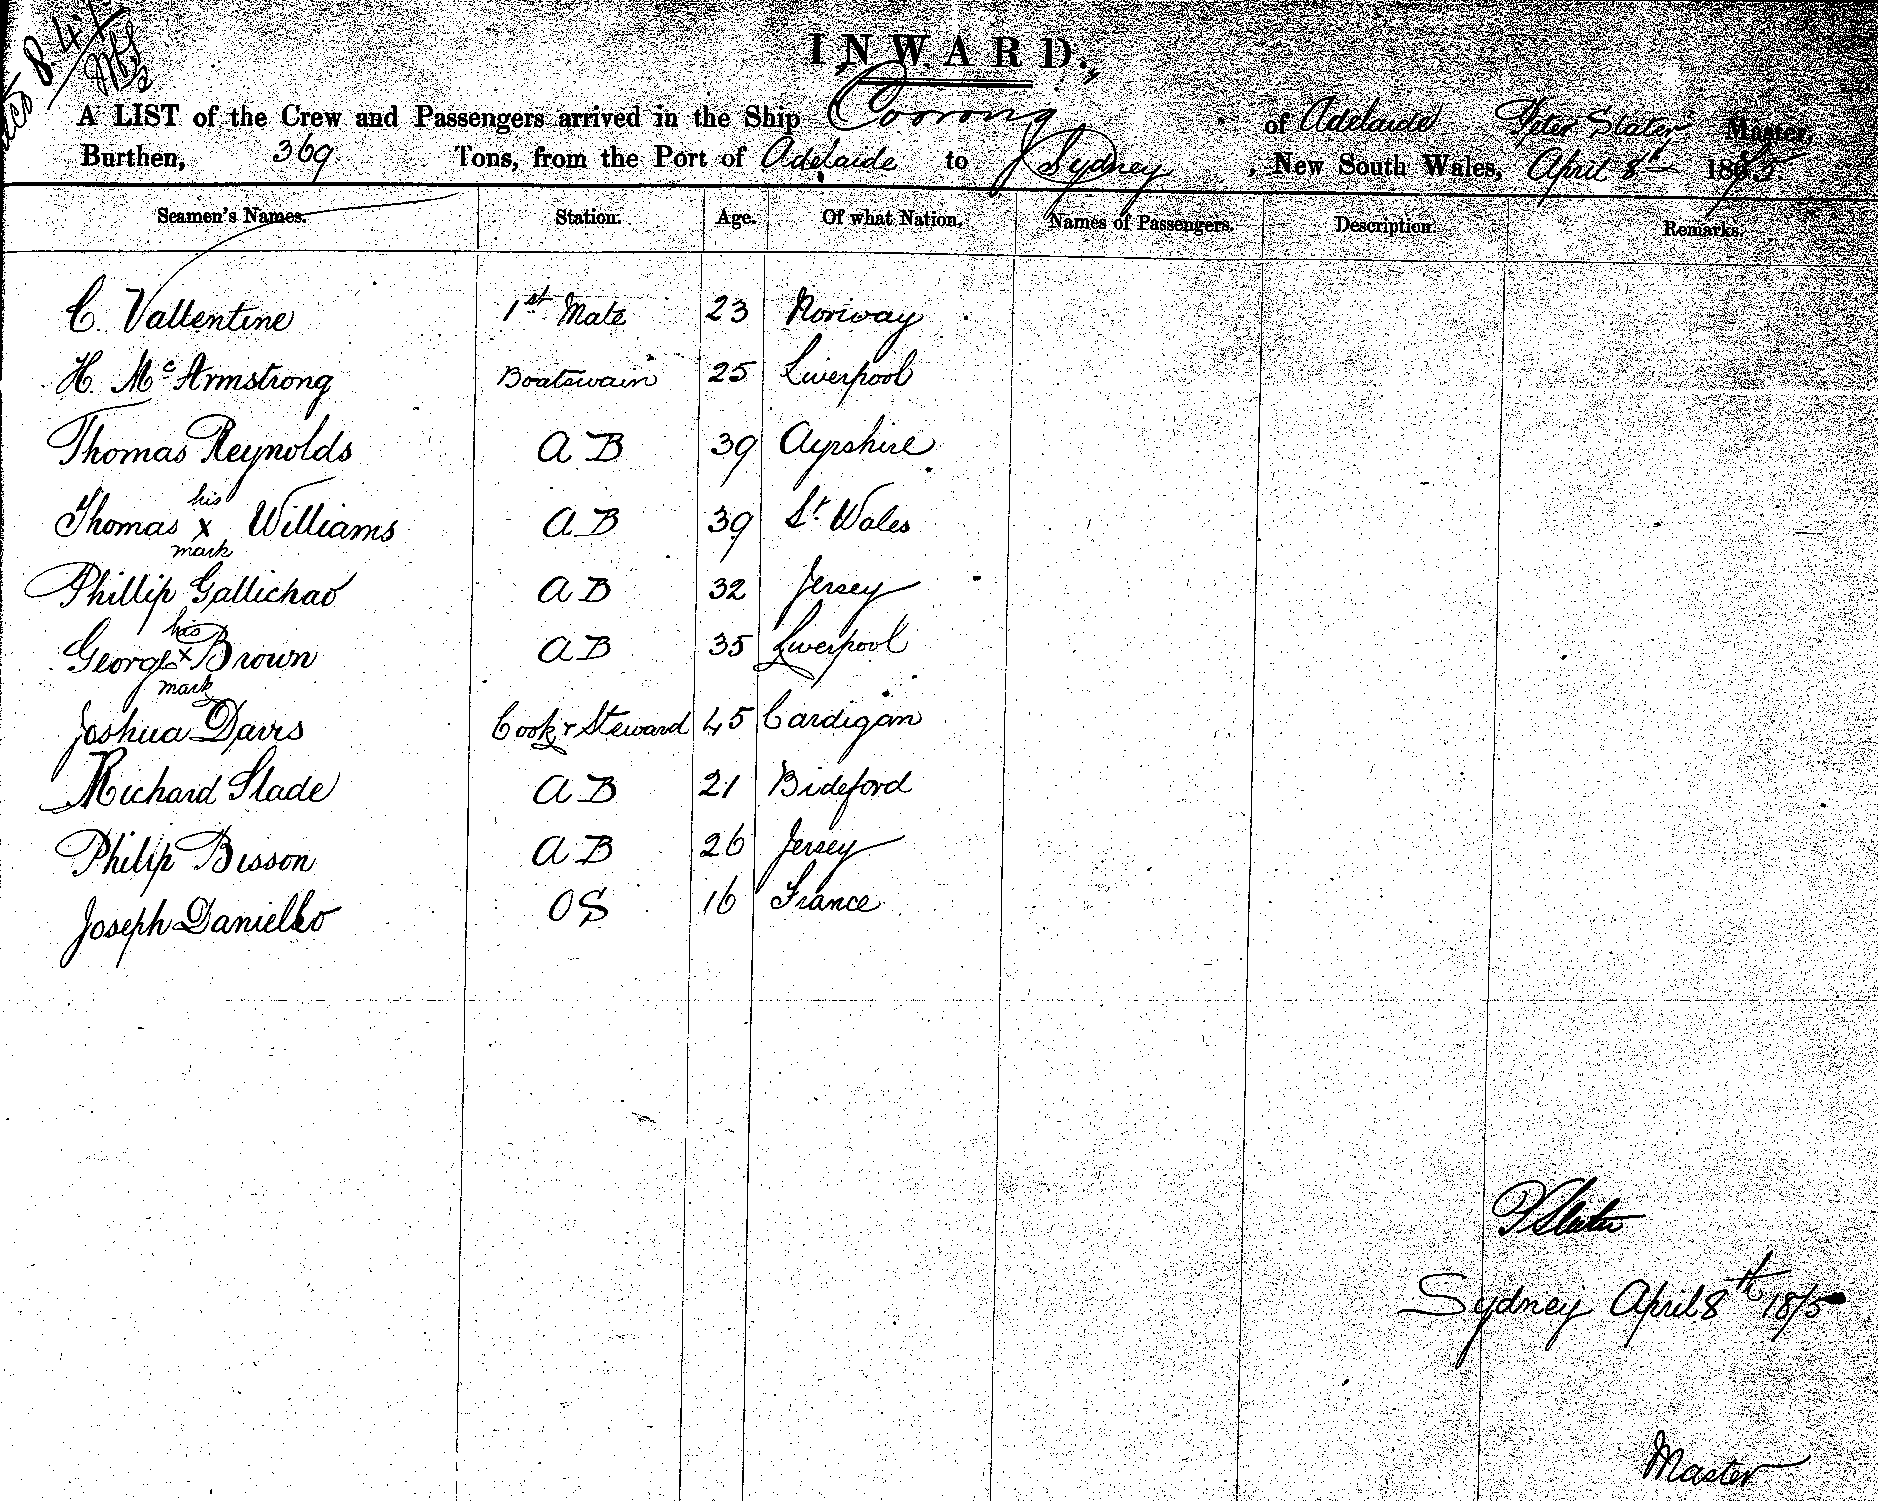 8.4
INWARD.
A LIST of the Crew and Passengers arrived in the Ship Coorong of Adelaide Peter Slater Master,
Burthen, 369 Tons, from the Port of Adelaide to Sydney, New South Wales, April 8th 1875.
Seamen's Names. Station. Age. Of what Nation. Names of Passengers. Description. Remarks.
C. Vallentine 1st Mate 23 Norway
H. McArmstrong Boatswain 25 Liverpool
Thomas Reynolds AB 39 Ayrshire
his
Thomas x Williams AB 39 St. Wales
mark
Phillip Gallichao AB 32 Jersey
his
George x Brown AB 35 Liverpool
mark
Joshua Davis Cook & Steward 45 Cardigan
Richard Slade AB 21 Bideford
Philip Bisson AB 26 Jersey
Joseph Daniello OS 16 France
P Slater
Sydney April 8th 1875
Master